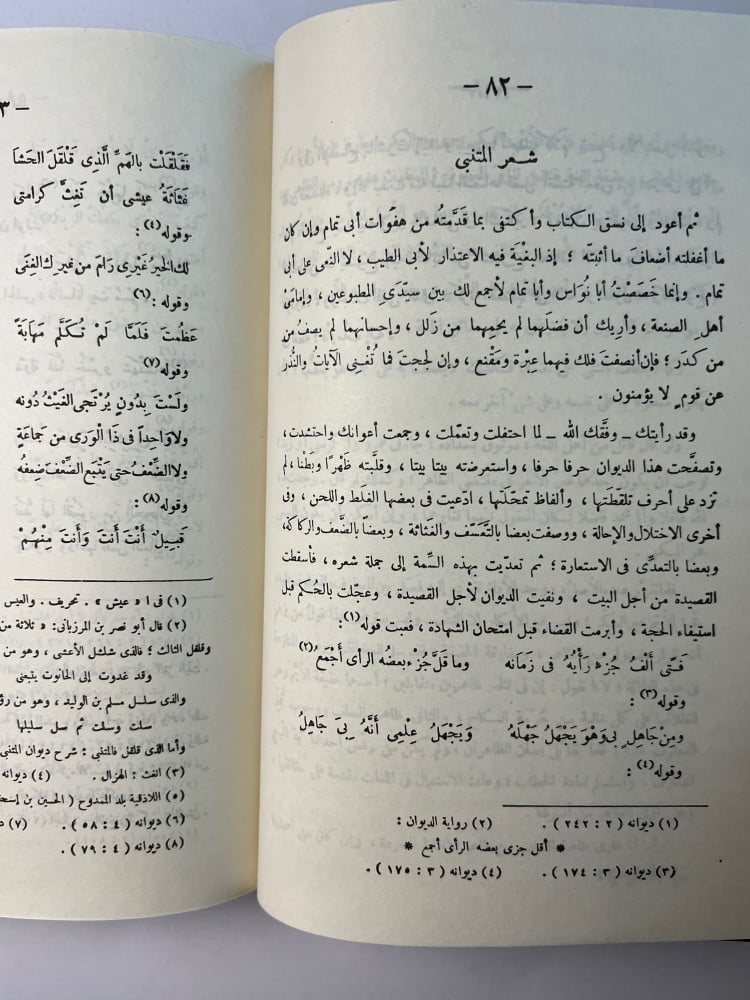 — ٨٢ —
شعر المتنبي
ثم أعود إلى نسق الكتاب وأكتفى بما قدَّمتُه من هفوات أبى تمام وإن كان
ما أغفلته أضعافَ ما أثبتّه ؛ إذ البغْية فيه الاعتذار لأبى الطيب ، لا النَّعى على أبى
تمام . وإنما خَصَصْتُ أبا نُوَاس وأبا تمام لأجمع لك بين سيّدَى المطبوعين ، وإمامَىْ
أهلِ الصنعة ، وأريك أن فضلَهما لم يحمِهما من زَلل ، وإحسانَهما لم يصفُ من
من كدَر ؛ فإن أنصفتَ فلك فيهما عِبْرة ومَقْنع ، وإن لججتَ فما تُغْنِى الآيَاتُ والنُّذُر
عن قومٍ لا يؤمنون .
وقد رأيتك ــ وفَّقك الله ــ لما احتفلت وتعمّلت ، وجمعت أعوانك واحتشدت ،
وتصفَّحت هذا الديوان حرفا حرفا ، واستعرضته بيتا بيتا ، وقلَّبته ظَهْرًا وبَطْنا ، لم
تزد على أحرف تلقّطتَها ، وألفاظ تمحّلتَها ، ادّعيت فى بعضها الغلَط واللحن ، وفى
أخرى الاختلال والإحالة ، ووصفت بعضا بالتعسّف والغثاثة ، وبعضا بالضَّعف والركاكة ،
وبعضا بالتعدّى فى الاستعارة ؛ ثم تعدّيت بهذه السِّمة إلى جملة شعره ، فأسقطت
القصيدة من أجل البيت ، ونفيت الديوان لأجل القصيدة ، وعجّلت بالحُكم قبل
استيفاء الحجة ، وأبرمت القضاء قبل امتحان الشهادة ، فعبت قوله(١) :
فَتًى أَلْفُ جُزْءٍ رَأْيُهُ فى زَمَانه وما قلَّ جُزْءٍ بعضُه الرأى أَجْمَعُ(٢)
وقوله(٣) :
ومِنْ جَاهِلٍ بى وَهْوَ يَجْهَلُ جَهْلَهُ وَيَجْهَلُ عِلْمِى أَنَّهُ بِىَ جَاهِلُ
وقوله(٤) :
(١) ديوانه ( ٢ : ٢٤٢ ) . (٢) رواية الديوان :
* أقل جزى بعضه الرأى أجمع *
(٣) ديوانه ( ٣ : ١٧٤ ) . (٤) ديوانه ( ٣ : ١٧٥ ) .
٣ —
فَقَلْقَلْت بالهَمِّ الَّذِى قَلْقَلَ الحَشا
غَثَاثَةُ عيشى أن تَغِثَّ كرامتى
وقوله(٤) :
لك الخيرُ غَيْرِى رَامَ من غيرك الغِنَى
وقوله :(٦)
عَظُمْتَ فَلَمَّا لَمْ تُكَلَّم مَهَابَةً
وقوله(٧)
ولَسْتَ بِدُونٍ يُرْتَجى الغَيْثُ دُونه
ولا وَاحِداً فى ذَا الْوَرَى من جَمَاعَةٍ
ولا الضِّعْفُ حتى يَتْبَع الضِّعْفَ ضِعْفُه
وقوله(٨) :
قَبِيلٌ أَنْتَ أَنْتَ وَأَنْتَ مِنْهُمْ
(١) فى ا « عيش » . تحريف . والعيس
(٢) قال أبو نصر بن المرزبانى: « ثلاثة من
وقلقل الثالث ؛ فالذى شلشل الأعشى ، وهو من
وقد غدوت إلى الحانوت يتبعنى
والذى سلسل مسلم بن الوليد ، وهو من رؤ
سلت وسلت ثم سل سليلها
وأما الذى قلقل فالمتنبى : شرح ديوان المتنبى
(٣) الغث : الهزال . (٤) ديوانه
(٥) اللاذقية بلد الممدوح ( الحسين بن إسحـ
(٦) ديوانه ( ٤ : ٥٨ ) . (٧)
(٨) ديوانه ( ٤ : ٧٩ ) .